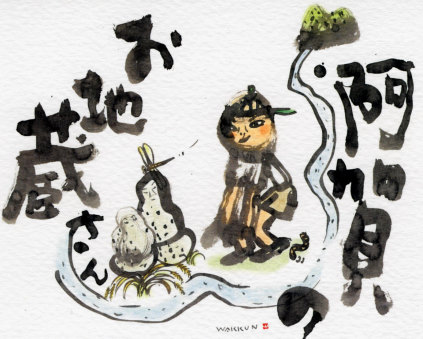 阿賀の
お地蔵さん
WAKKUN